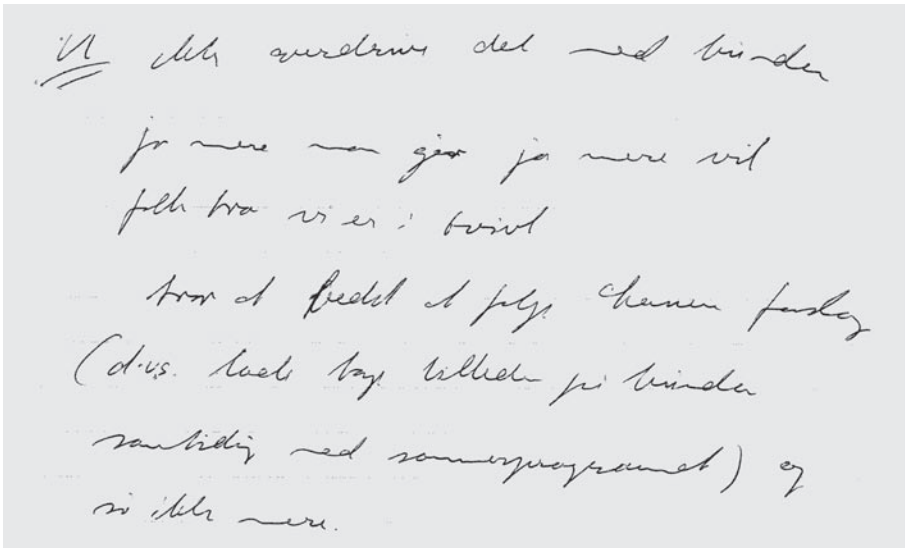 Vil ikke overdrive det med
jo mere man gør jo mere vil
folk tro vi er i tvivl
tror det bedst at følge forslag
(d.v.s. lade tage billeder på
samtidig med sommerprogrammet) og
så ikke mere.